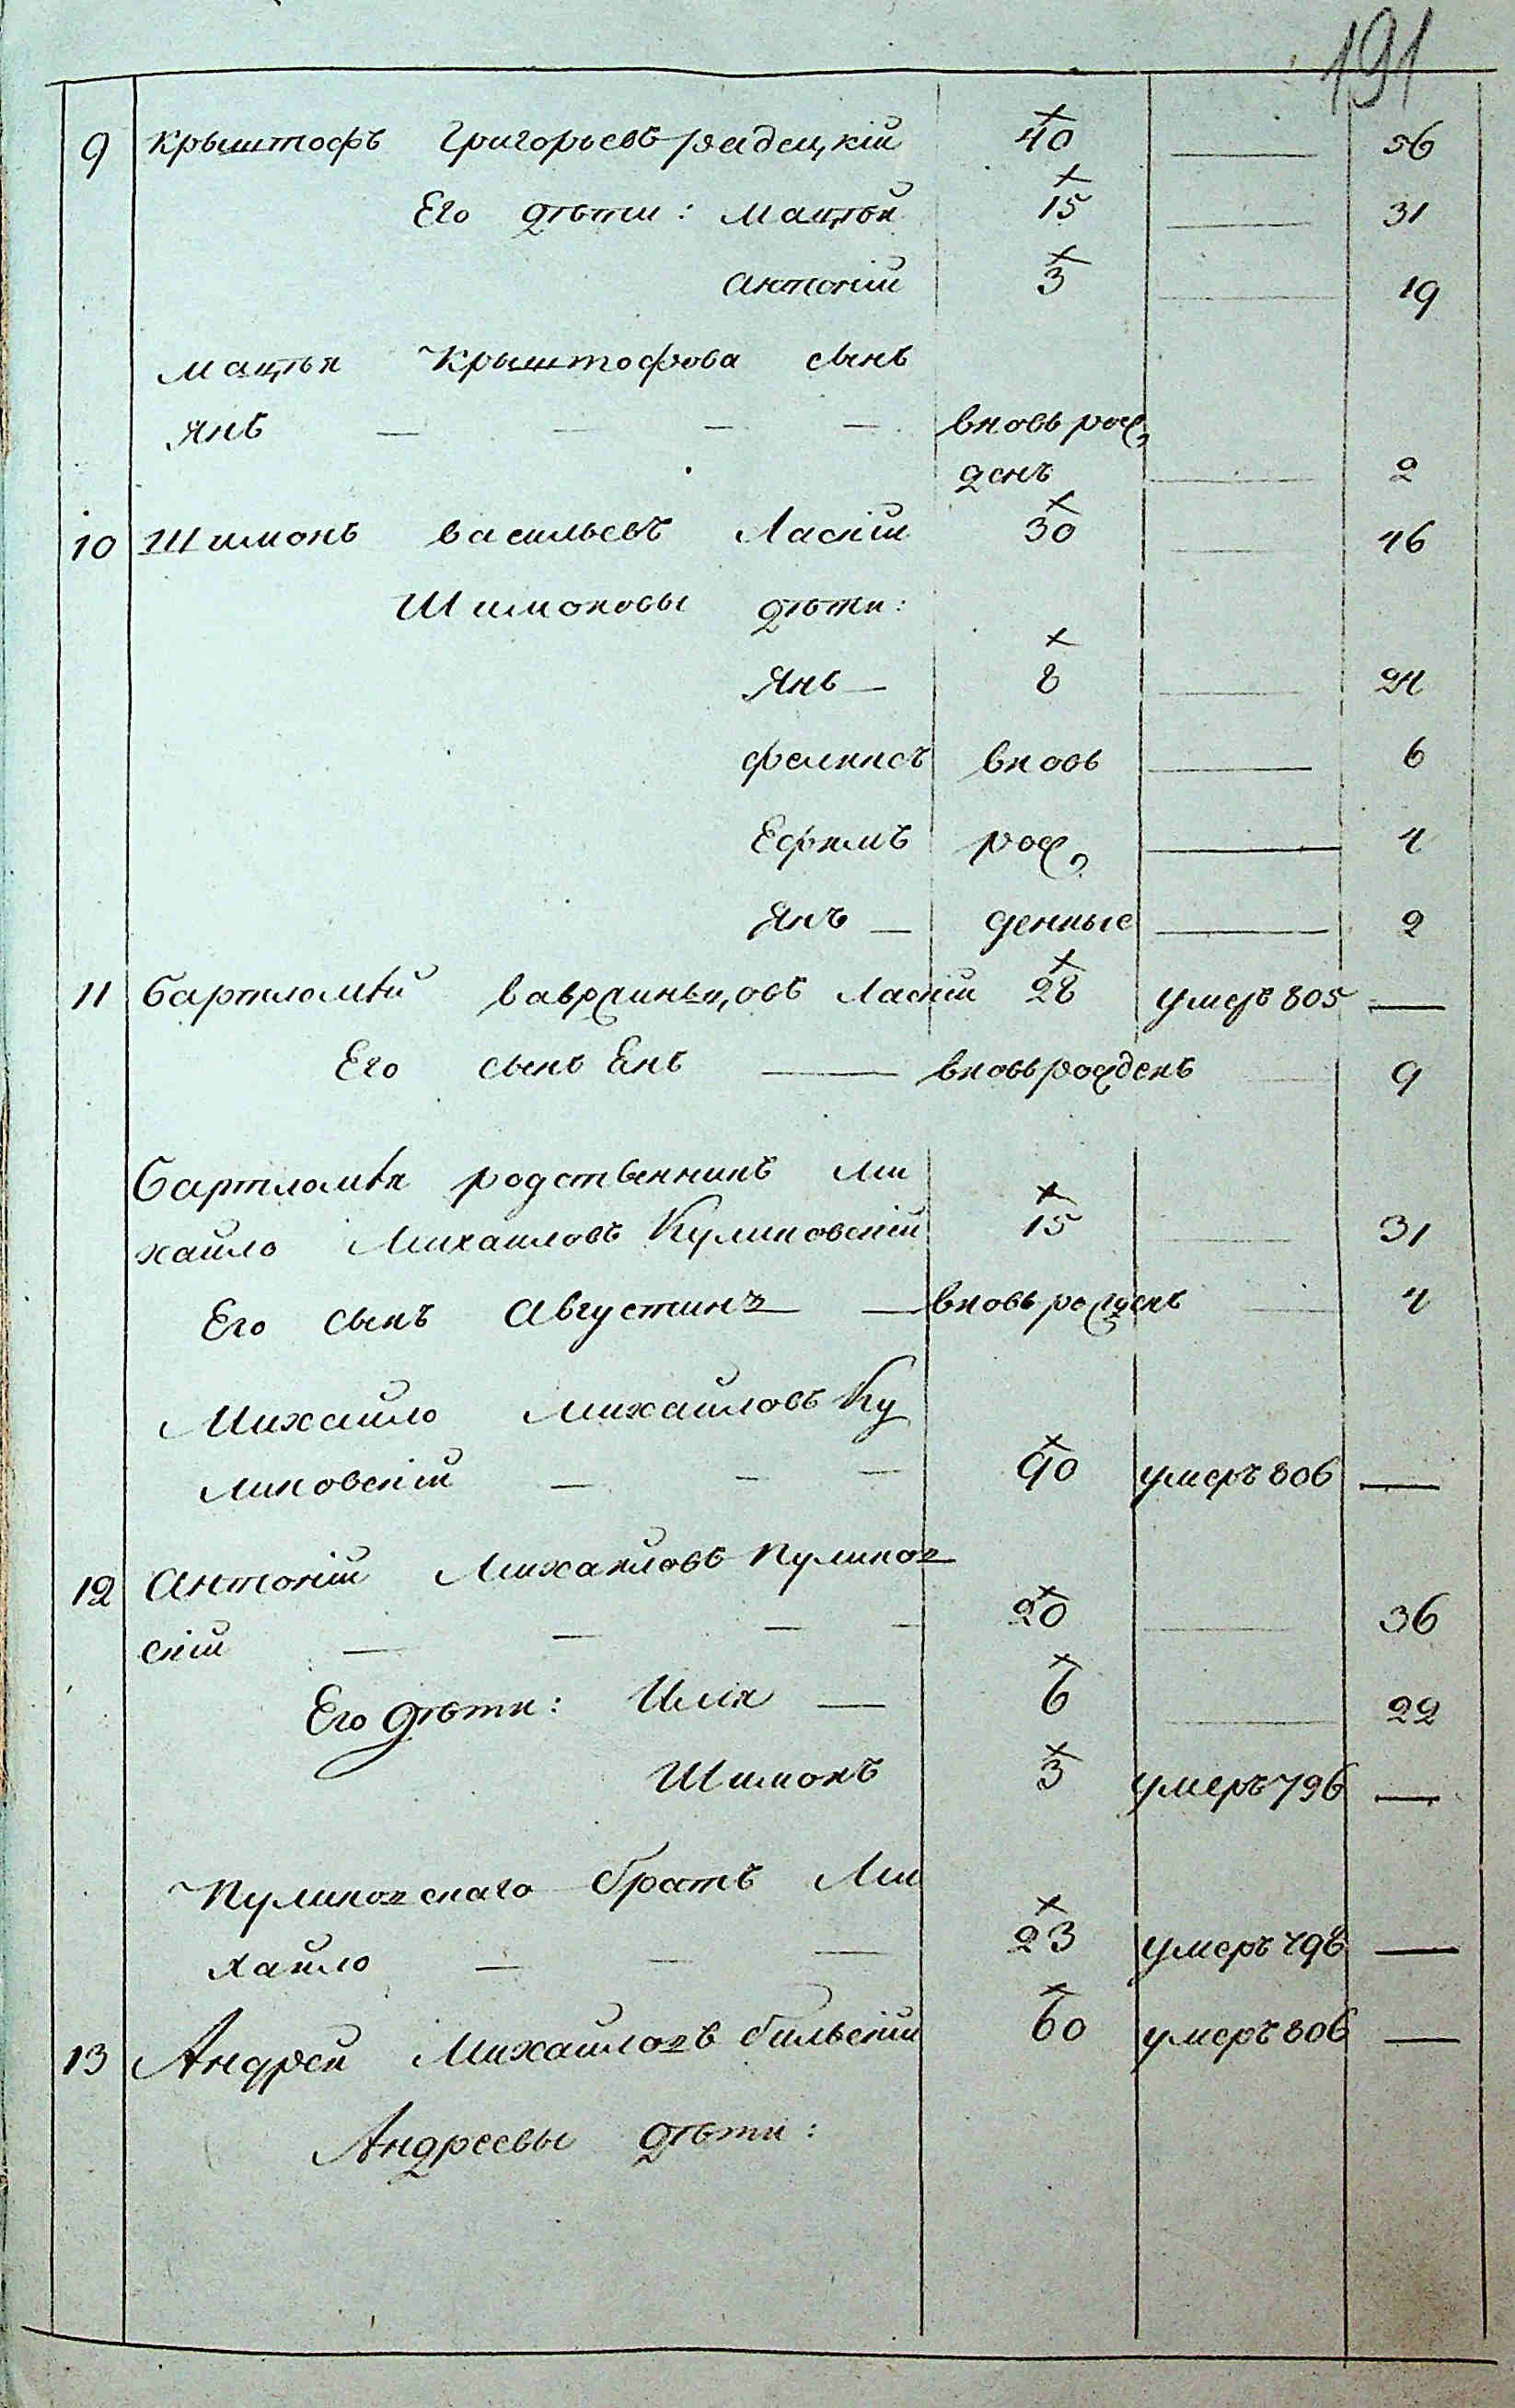 191
9 Крыштофъ Григорьевъ Радецкій 40 — 56
Его дѣти: Мацѣй 15 — 31
Антоній 3 — 19
Мацѣя Крыштофова сынъ
Янъ — — — — вновь рож
денъ — 2
10 Шимонъ Васильевъ Ласкій 30 — 46
Шимоновы дѣти:
Янъ — 8 — 24
Феликсъ вновь — 6
Ефимъ рож — 4
Янъ — денные — 2
11 Бартломѣй Вавржиньцовъ Ласкій 28 умеръ 805 —
Его сынъ Енъ — вновь рожденъ — 9
Бартломѣя родственникъ Ми
хайло Михайловъ Куликовскій 15 — 31
Его сынъ Августинъ — вновь рожденъ — 4
Михайло Михайловъ Ку
ликовскій — — — 90 умеръ 806 —
12 Антоній Михайловъ Куликов
скій — — — — 20 — 36
Его дѣти: Илія — 6 — 22
Шимонъ 3 умеръ 796 —
Куликовскаго братъ Ми
хайло — — — 23 умеръ 798 —
13 Андрей Михайловъ Бильскій 60 умеръ 806 —
Андреевы дѣти: